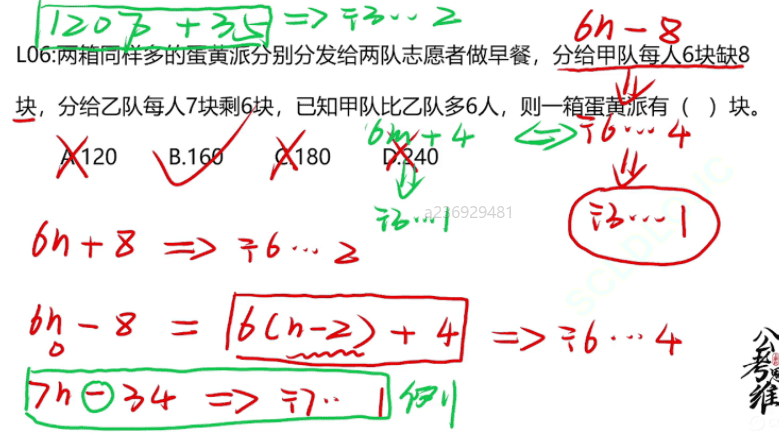 120多 + 35 => ÷3…2
6n-8
L06:两箱同样多的蛋黄派分别分发给两队志愿者做早餐，分给甲队每人6块缺8
块，分给乙队每人7块剩6块，已知甲队比乙队多6人，则一箱蛋黄派有（ ）块。
6m+4 <=> ÷6…4
A.120 B.160 C.180 D.240
÷3…1
a236929481
÷3…1
6n+8 => ÷6…2
6n-8 = 6(n-2)+4 => ÷6…4
7n-34 => ÷7…1 例
公考
思维